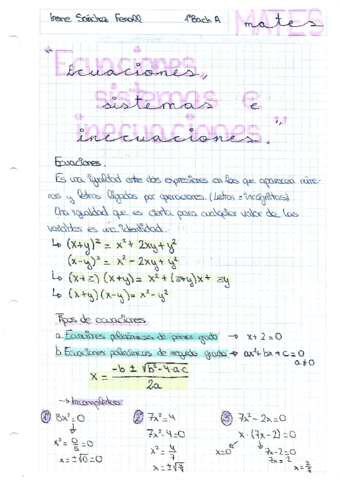 Irene Sánchez Ferroll 1ºBach A mates
MATES
"Ecuaciones,
sistemas e
inecuaciones."
Ecuaciones.
Es una igualdad entre dos expresiones en las que aparecen núme-
ros y letras ligados por operaciones (Letras = incógnitas)
Una igualdad que es cierta para cualquier valor de las
variables es una identidad.
↳ (x+y)² = x² + 2xy + y²
(x-y)² = x² - 2xy + y²
↳ (x+z)(x+y) = x² + (z+y)x + zy
↳ (x+y)(x-y) = x² - y²
Tipos de ecuaciones
a. Ecuaciones polinómicas de primer grado → x + 2 = 0
b. Ecuaciones polinómicas de segundo grado → ax² + bx + c = 0
a≠0
x = -b ± √b² - 4·a·c / 2a
→ Incompletas
① 8x² = 0 ② 7x² = 4 ③ 7x² - 2x = 0
x² = 0/8 = 0 7x² - 4 = 0 x · (7x - 2) = 0
x = ±√0 = 0 x² = 4/7 x = 0 7x - 2 = 0
x = ±√4/7 7x = 2 x = 2/7